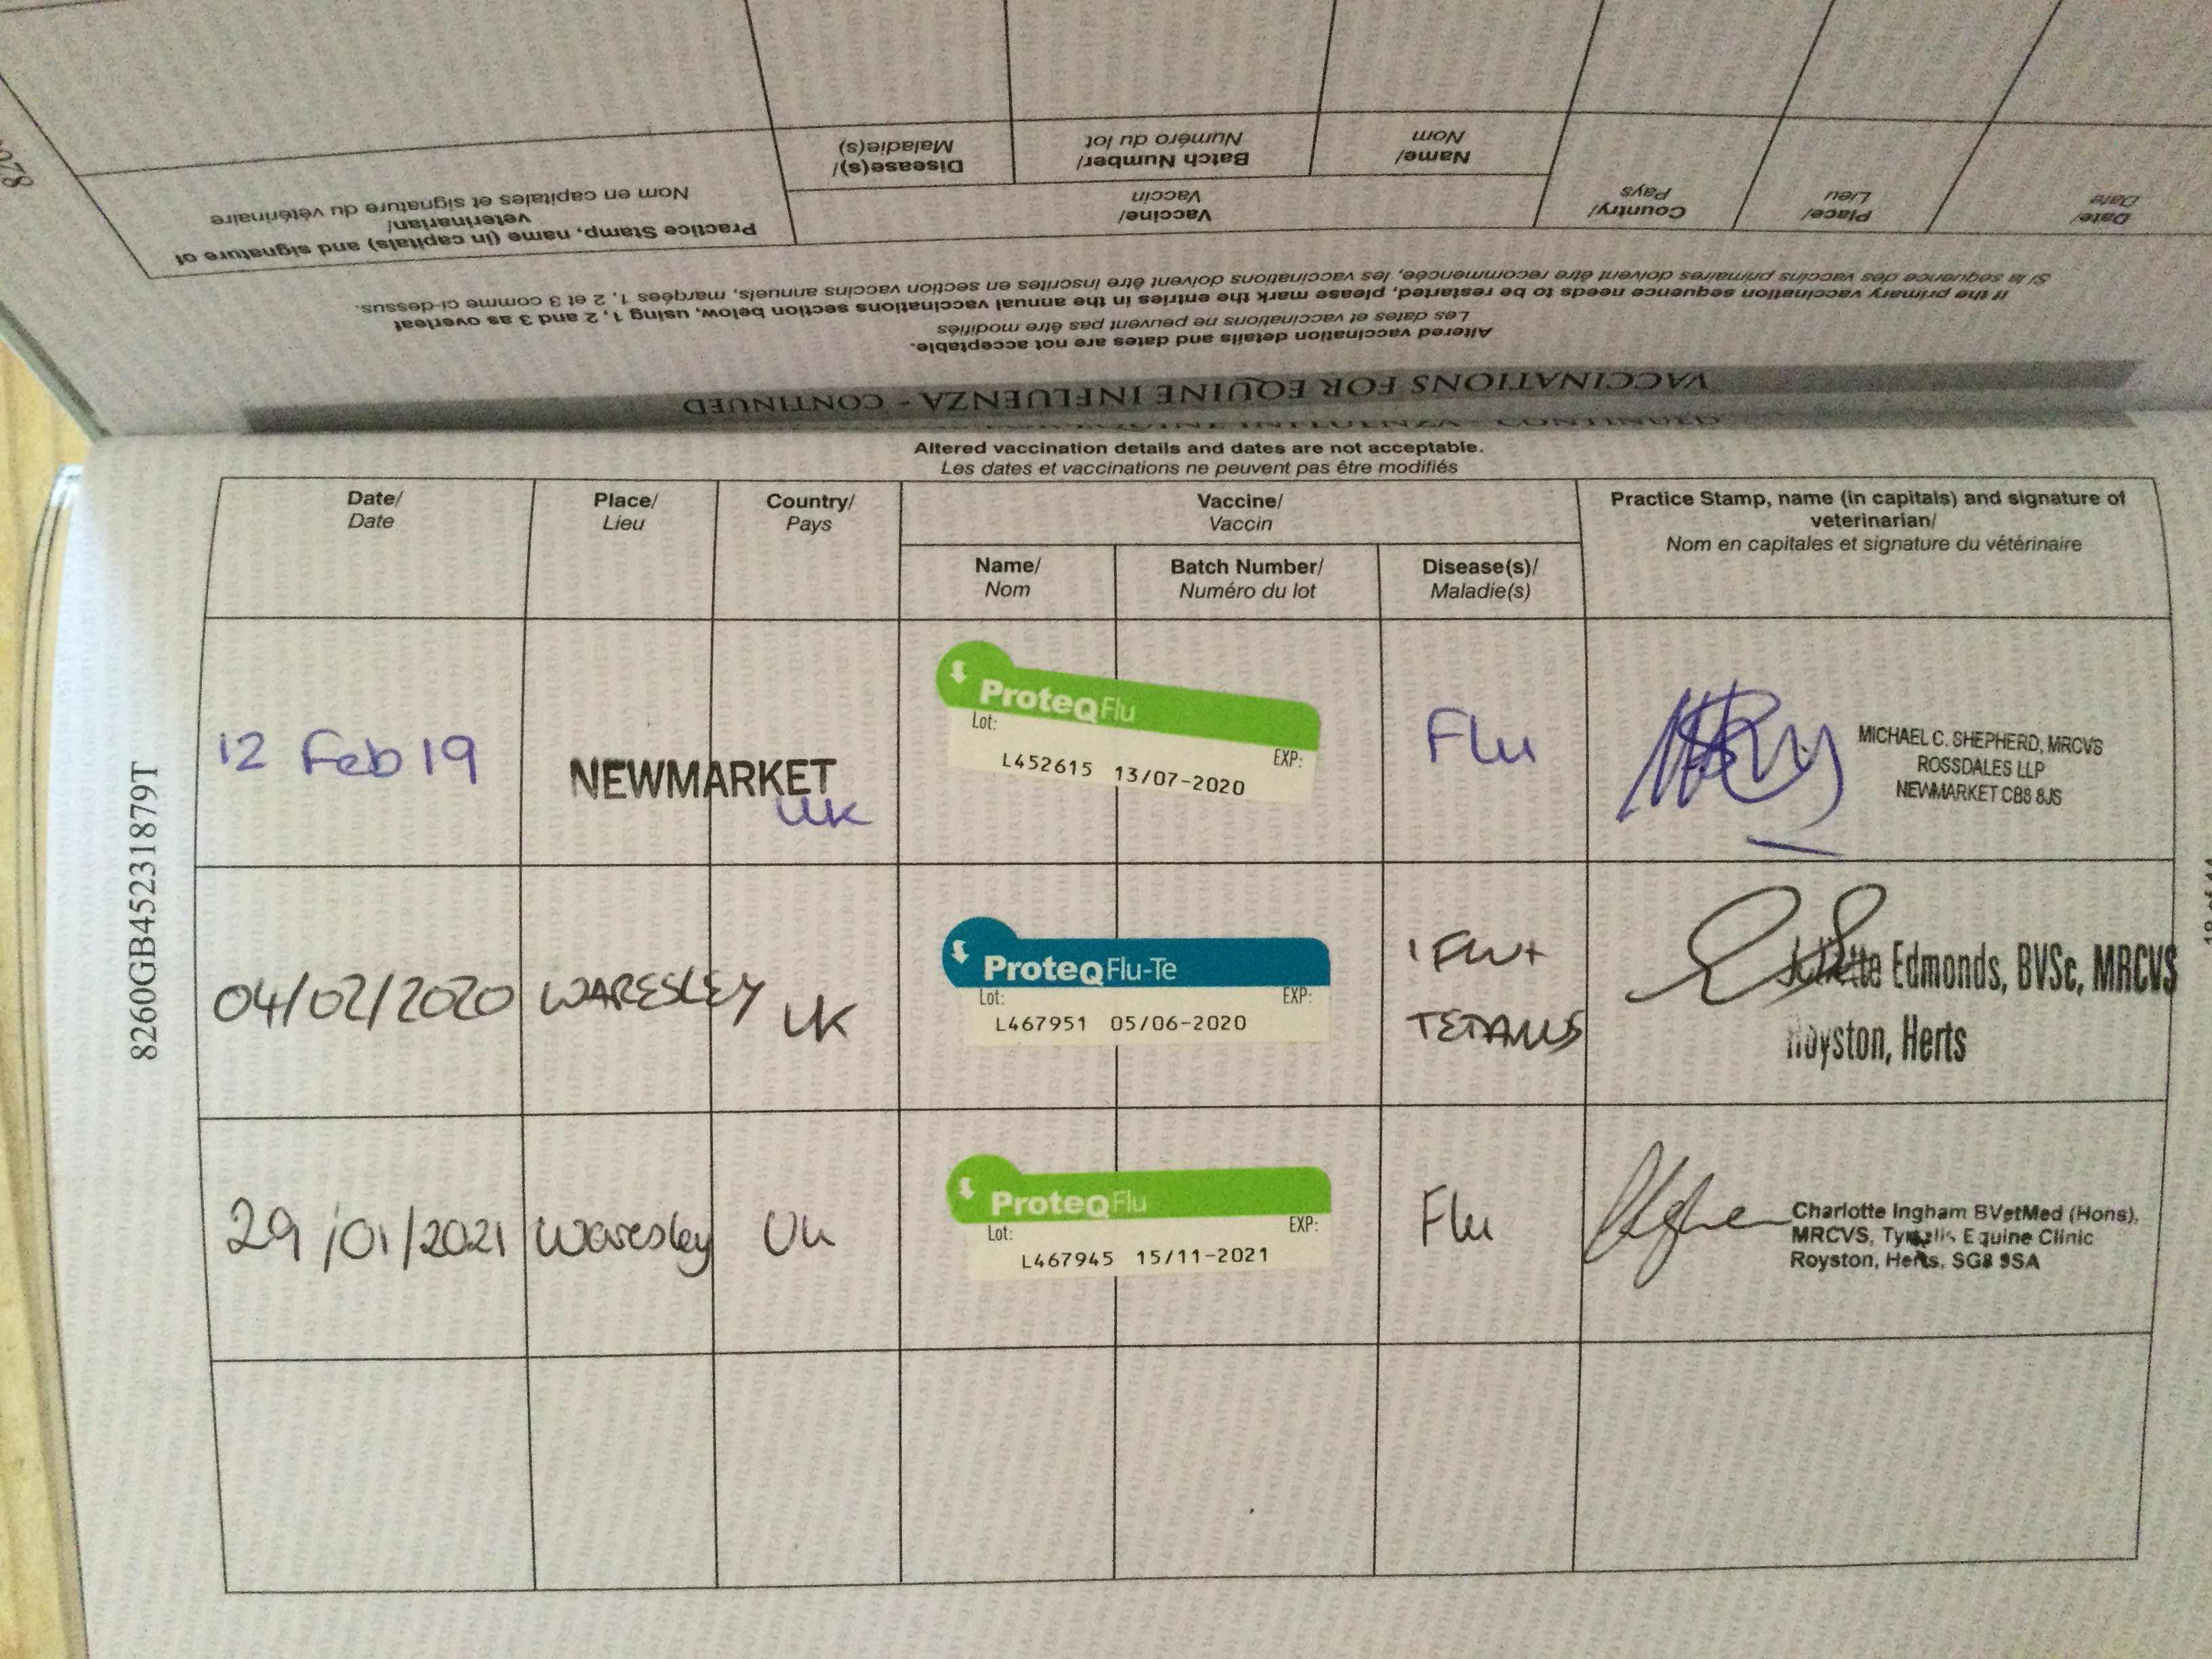 Practice Stamp, name (in capitals) and signature of
veterinarian/
Nom en capitales et signature du vétérinaire
Vaccine/
Vaccin
Disease(s)/
Maladie(s)
Batch Number/
Numéro du lot
Name/
Nom
Country/
Pays
Place/
Lieu
Date/
Date
If the primary vaccination sequence needs to be restarted, please mark the entries in the annual vaccinations section below, using 1, 2 and 3 as overleaf
Si la séquence des vaccins primaires doivent être recommencée, les vaccinations doivent être inscrites en section vaccins annuels, marqées 1, 2 et 3 comme ci-dessus.
Altered vaccination details and dates are not acceptable.
Les dates et vaccinations ne peuvent pas être modifiés
VACCINATIONS FOR EQUINE INFLUENZA - CONTINUED
Altered vaccination details and dates are not acceptable.
Les dates et vaccinations ne peuvent pas être modifiés
Date/
Date
Place/
Lieu
Country/
Pays
Vaccine/
Vaccin
Practice Stamp, name (in capitals) and signature of
veterinarian/
Nom en capitales et signature du vétérinaire
Name/
Nom
Batch Number/
Numéro du lot
Disease(s)/
Maladie(s)
12 Feb 19
NEWMARKET
UK
ProteqFlu
Lot:
EXP:
L452615 13/07-2020
Flu
MICHAEL C. SHEPHERD, MRCVS
ROSSDALES LLP
NEWMARKET CB8 8JS
04/02/2020
WARESLEY
UK
ProteqFlu-Te
Lot:
EXP:
L467951 05/06-2020
FLU+
TETANUS
Edmonds, BVSc, MRCVS
Royston, Herts
29/01/2021
Waresley
Uk
ProteqFlu
Lot:
EXP:
L467945 15/11-2021
Flu
Charlotte Ingham BVetMed (Hons),
MRCVS, Equine Clinic
Royston, Herts, SG8 9SA
8260GB45231879T